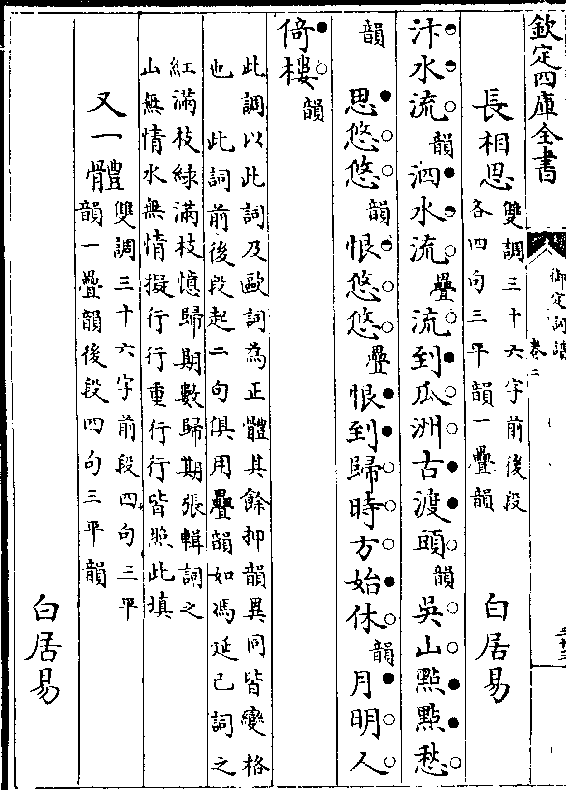 欽定四庫全書
御定詞譜
卷二
長相思
雙調三十六字前後段
各四句三平韻一疊韻
白居易
汴水流韻泗水流疊流到瓜洲古渡頭韻吳山點點愁
韻　思悠悠韻恨悠悠疊恨到歸時方始休韻月明人
倚樓韻
此調以此詞及歐詞為正體其餘押韻異同皆變格
也　此詞前後段起二句俱用疊韻如馮延巳詞之
紅滿枝綠滿枝憶歸期數歸期張輯詞之
山無情水無情擬行行重行行皆照此填
又一體
雙調三十六字前段四句三平
韻一疊韻後段四句三平韻
白居易